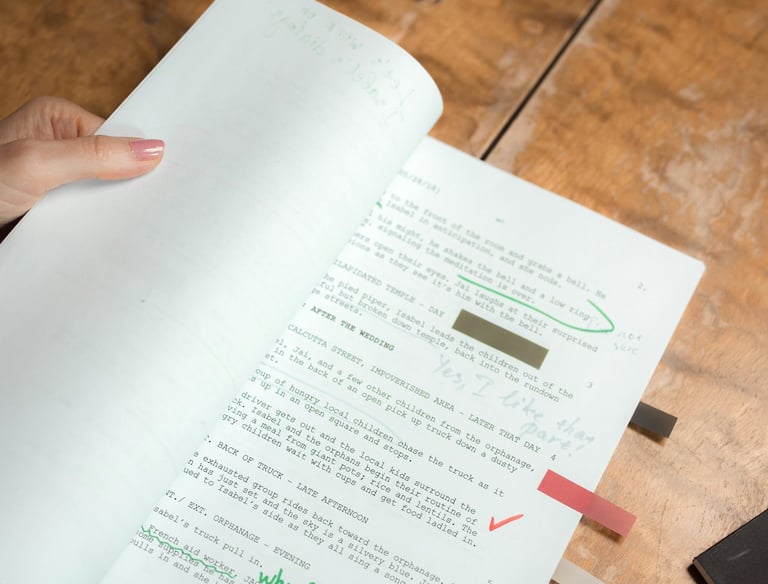 2.
to the front of the room and grabs a bell. He
Isabel in anticipation, and she nods.
his might, he shakes the bell and a low ring
signaling the meditation is over.
open their eyes. Jai laughs at their surprised
as they see it's him with the bell.
ILAPIDATED TEMPLE - DAY
3
pied piper, Isabel leads the children out of the
but broken down temple, back into the rundown
streets.
AFTER THE WEDDING
Yes, I like that
part!
CALCUTTA STREET, IMPOVERISHED AREA - LATER THAT DAY
4
Jai, and a few other children from the orphanage,
in the back of an open pick up truck down a dusty
of hungry local children chase the truck as it
up in an open square and stops.
driver gets out and the local kids surround the
Isabel and the orphans begin their routine of
a meal from giant pots; rice and lentils. The
children wait with cups and get food ladled in.
BACK OF TRUCK - LATE AFTERNOON
exhausted group rides back toward the orphanage.
has just set and the sky is a silvery blue.
to Isabel's side as they all sing a song
EXT. ORPHANAGE - EVENING
5
truck pull in.
French aid worker,
supplies he has
in and she